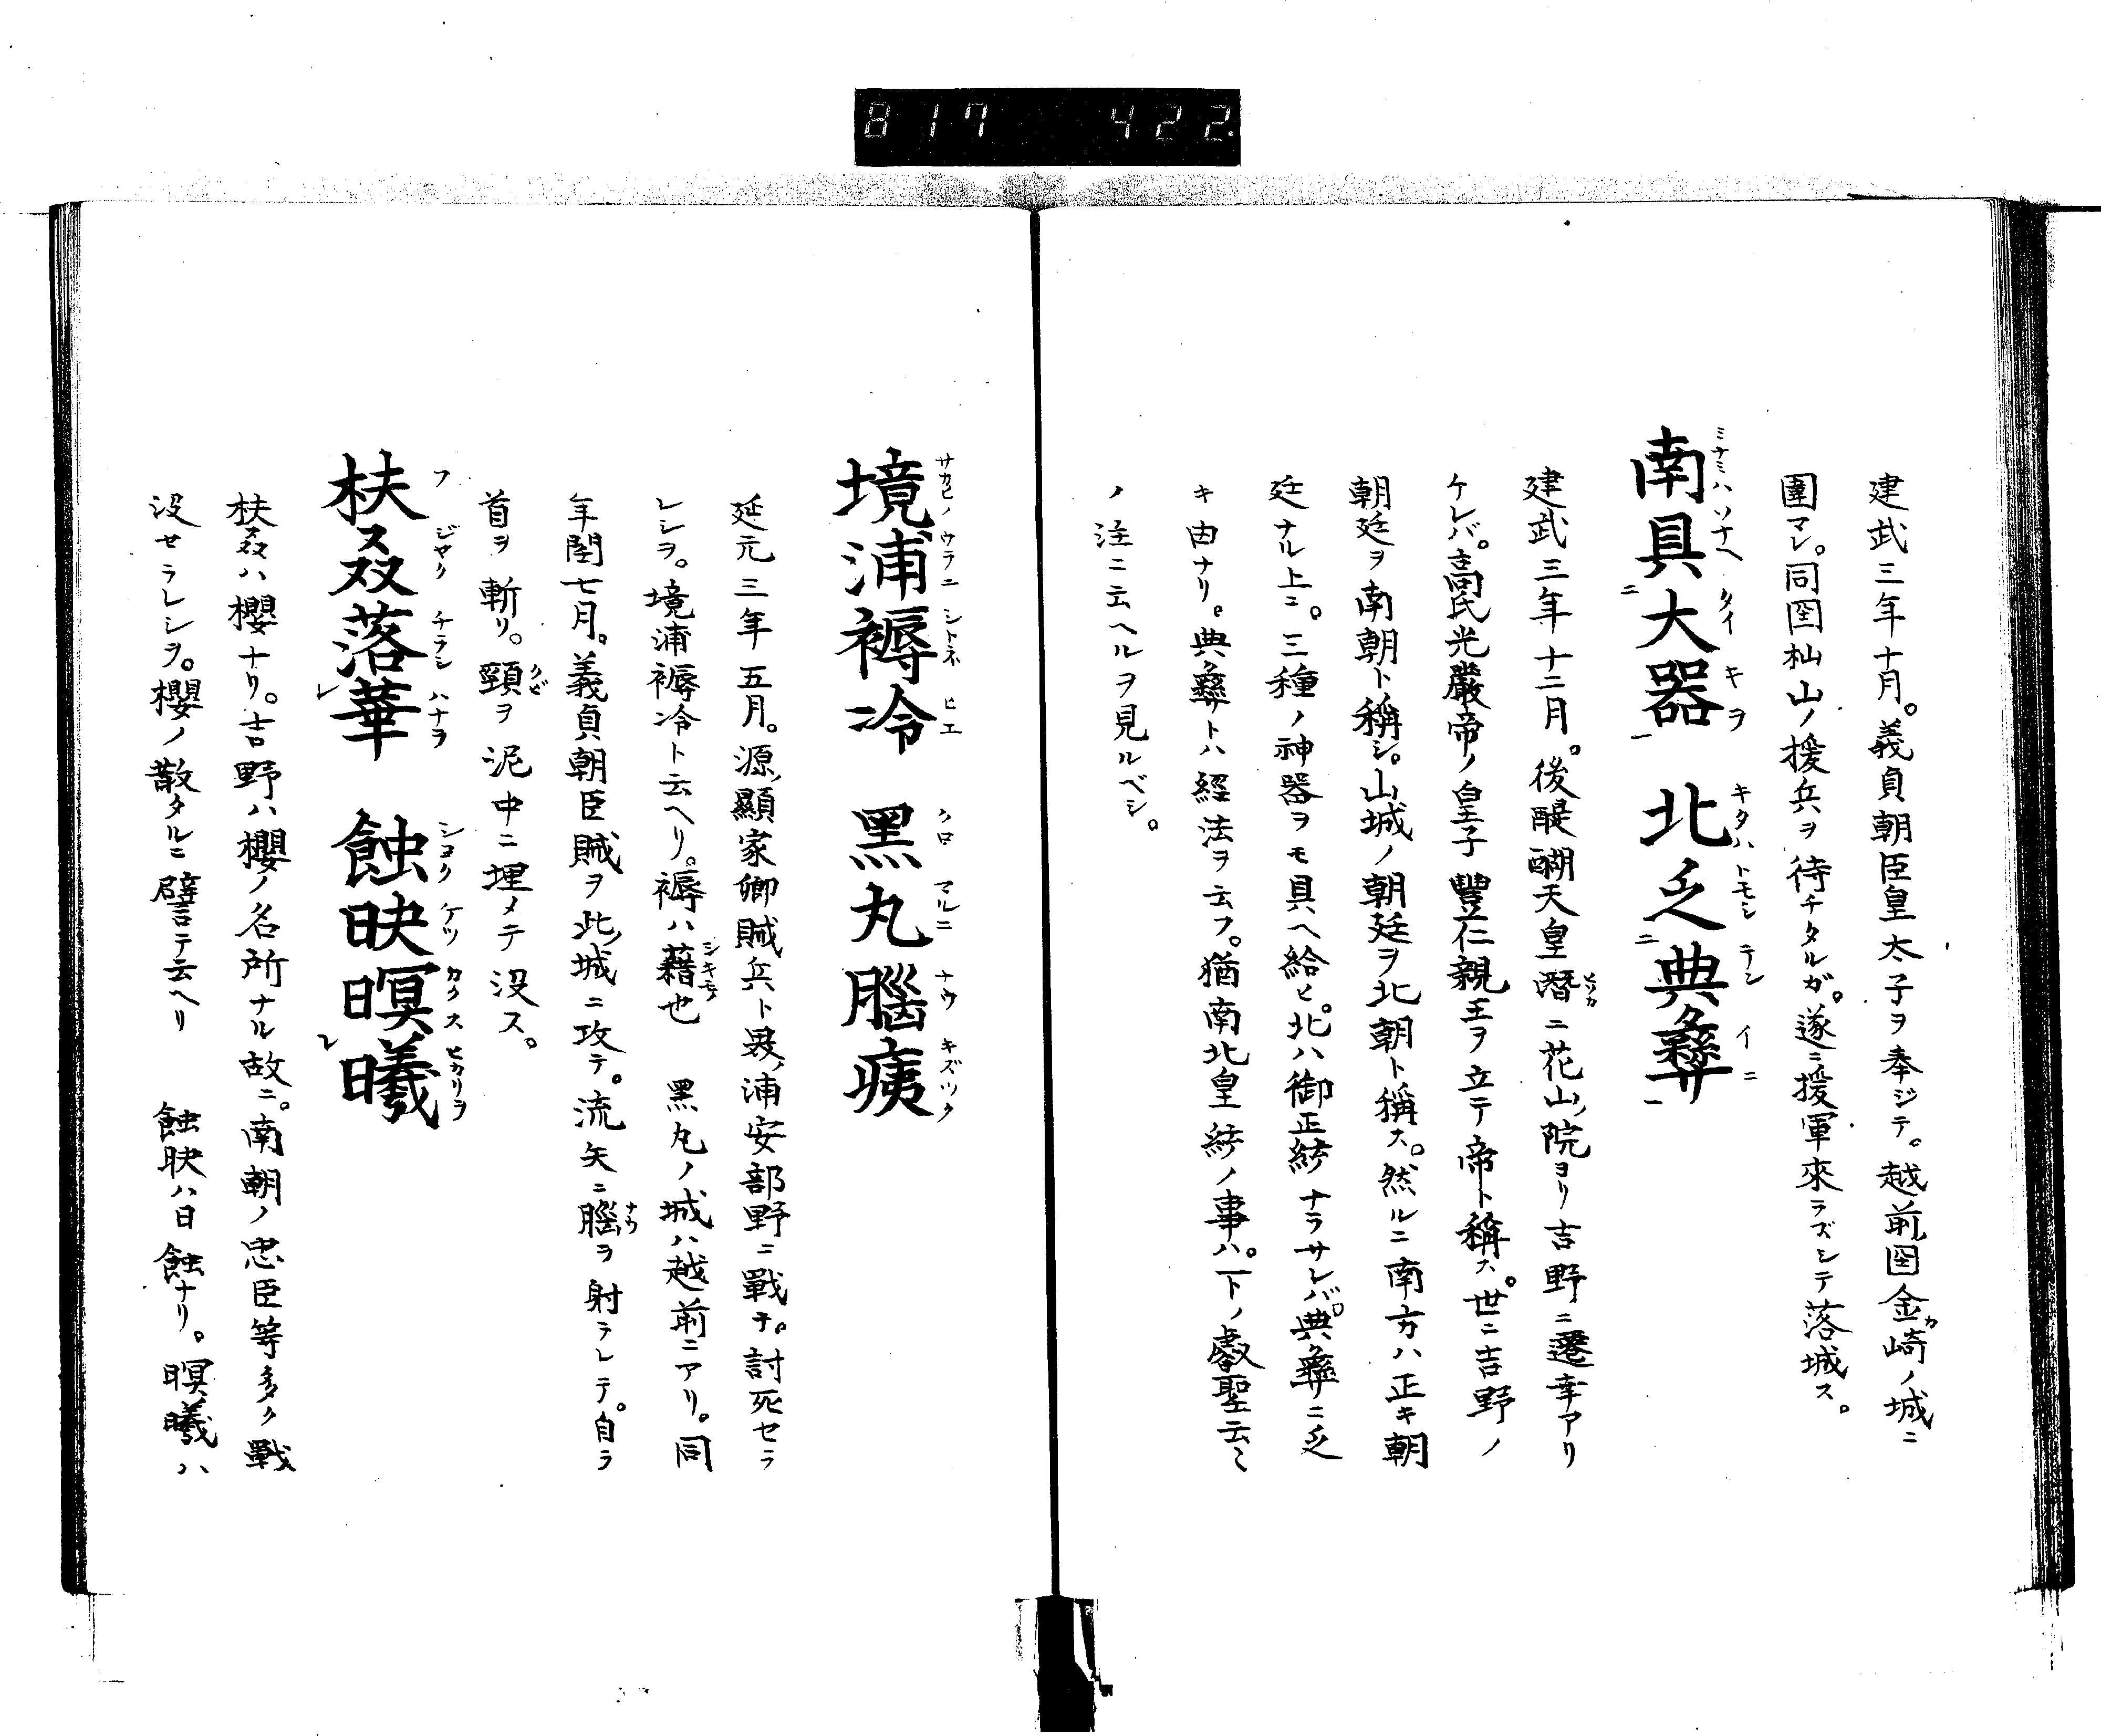 817 422
建武三年十月。義貞朝臣皇太子ヲ奉ジテ。越前国金崎ノ城ニ
圍マレ。同国杣山ノ援兵ヲ待チタルガ。遂ニ援軍來ラズシテ落城ス。
南具大器 北乏典彝
ミナミハ ソナヘ タイ キヲ キタハ トモシ テン イニ
建武三年十二月。後醍醐天皇潜ニ花山院ヨリ吉野ニ遷幸アリ
ケレバ。高氏光嚴帝ノ皇子豐仁親王ヲ立テ帝ト稱ス。世ニ吉野ノ
朝廷ヲ南朝ト稱シ。山城ノ朝廷ヲ北朝ト稱ス。然ルニ南方ハ正キ朝
廷ナル上ニ。三種ノ神器ヲモ具ヘ給ヒ。北ハ御正統ナラサレバ。典彝ニ乏
キ由ナリ。典彝トハ經法ヲ云フ。猶南北皇統ノ事ハ。下ノ叡聖云〻
ノ注ニ云ヘルヲ見ルベシ。
境浦褥冷 黑丸腦痍
サカヒノ ウラニ シトネ ヒエ クロ マルニ ナウ キズツク
延元三年五月。源顯家卿賊兵ト、浦安部野ニ戰テ。討死セラ
レシヲ。境浦褥冷ト云ヘリ。褥ハ藉也 黑丸ノ城ハ越前ニアリ。同
年閏七月。義貞朝臣賊ヲ此城ニ攻テ。流矢ニ腦ヲ射ラレテ。自ラ
首ヲ斬リ。頸ヲ泥中ニ埋メテ沒ス。
扶叒落華 蝕昳暝曦
フ ジヤク チラシ ハナヲ シヨク ケツ カクス ヒカリヲ
扶叒ハ櫻ナリ。吉野ハ櫻ノ名所ナル故ニ。南朝ノ忠臣等多ク戰
沒セラレシヲ。櫻ノ散タルニ譬テ云ヘリ 蝕昳ハ日蝕ナリ。暝曦ハ